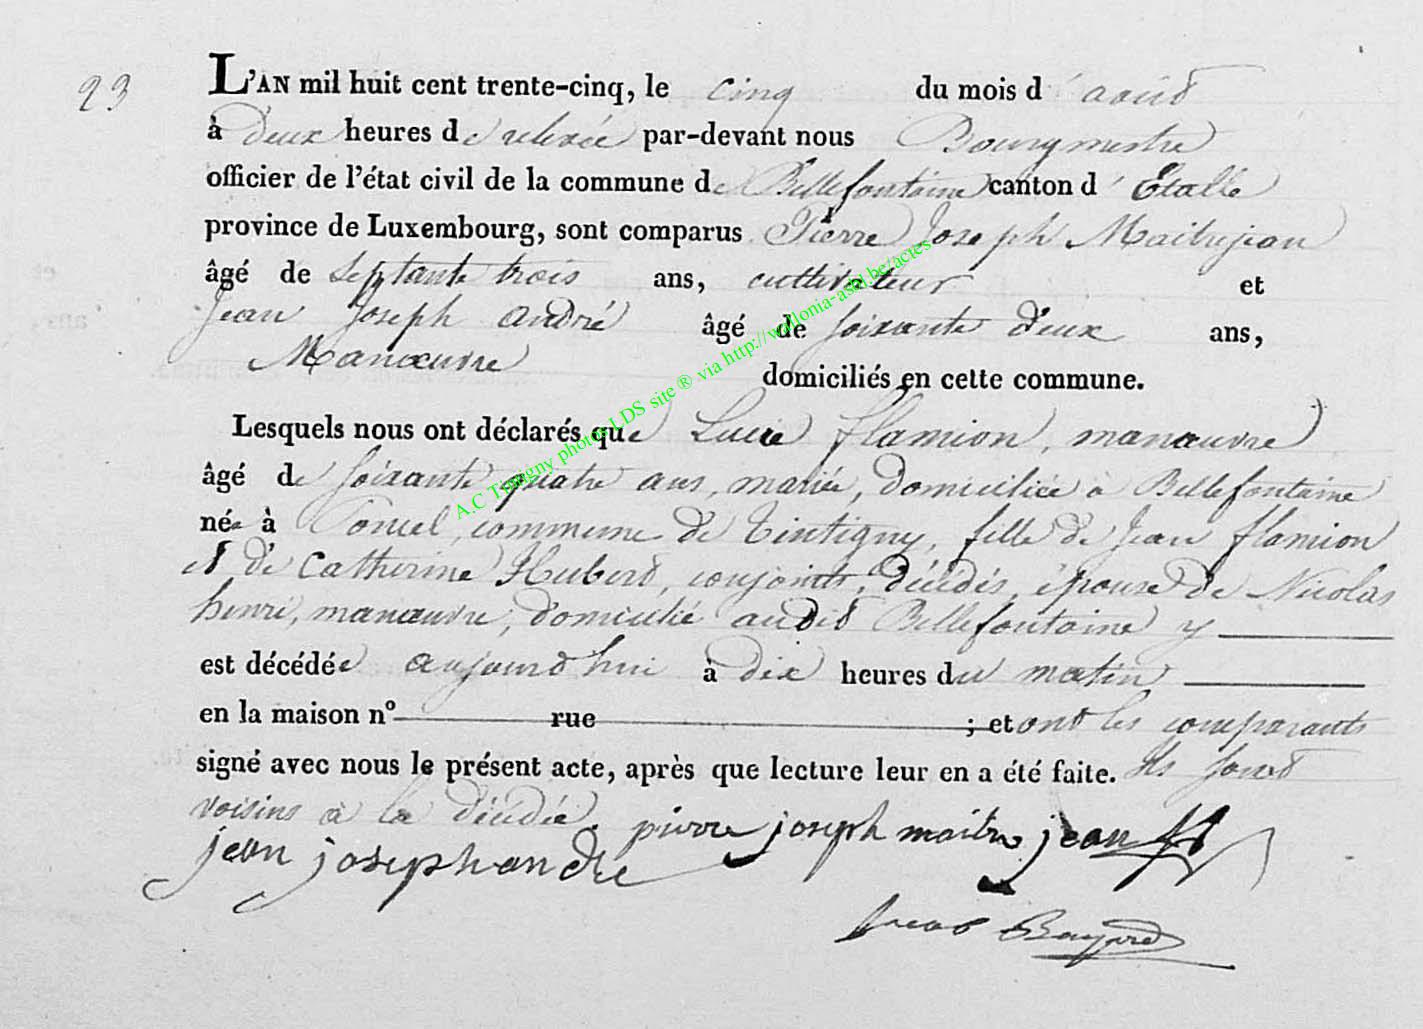 23
L'AN mil huit cent trente-cinq, le cinq du mois d'août
à deux heures de relevée par-devant nous Bourgmestre
officier de l'état civil de la commune de Bellefontaine canton d'Etalle
province de Luxembourg, sont comparus Pierre Joseph Maitrejean
âgé de septante trois ans, cultivateur et
Jean Joseph andré âgé de soixante deux ans,
Manœuvre domiciliés en cette commune.
Lesquels nous ont déclarés que Lucie flamion, manœuvre
âgé de soixante quatre ans, mariée, domiciliée à Bellefontaine
née à Poncel, commune de Tintigny, fille de Jean flamion
et de Catherine Hubert, conjoints, décédés, épouse de Nicolas
henri, manœuvre, domicilié audit Bellefontaine y
est décédée aujourd'hui à dix heures du matin
en la maison nº rue ; et ont les comparants
signé avec nous le présent acte, après que lecture leur en a été faite. Ils sont
voisins à la décédée. pierre joseph maitre jean
jean joseph andre
Bayard
A.C Tintigny photos LDS site ® via http://wallonia-asbl.be/actes